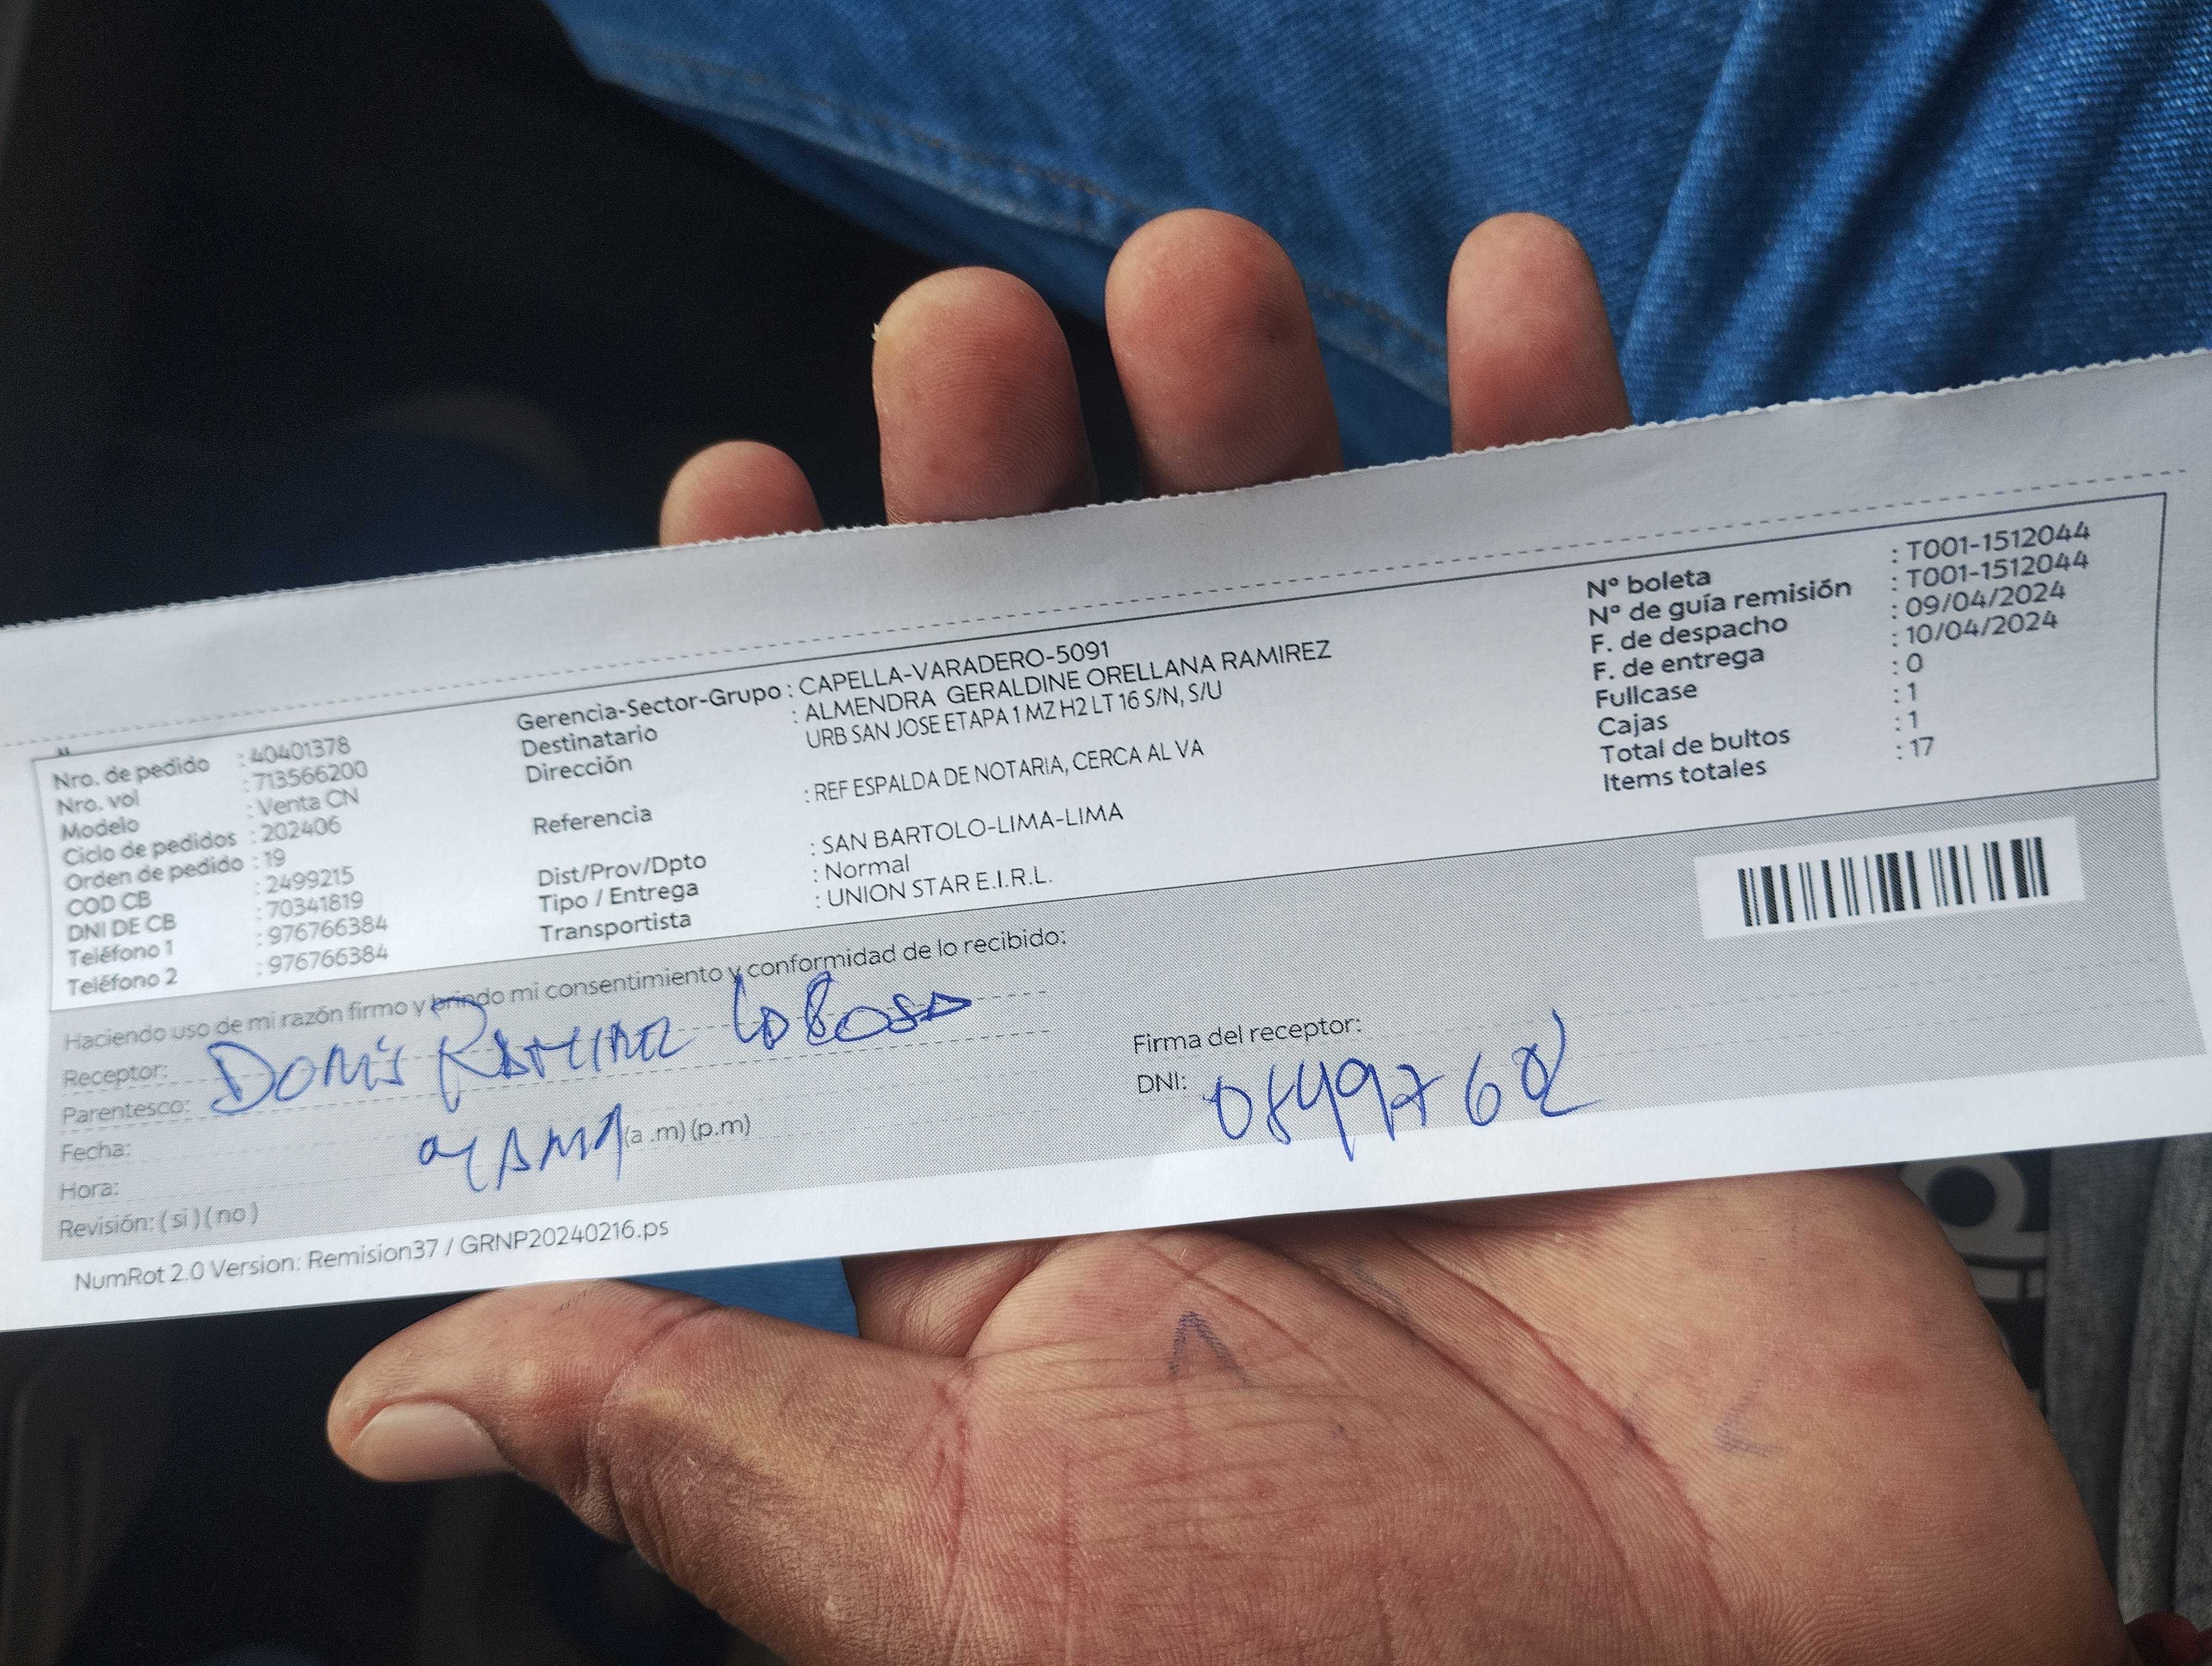 Nro. de pedido : 40401378
Nro. vol : 713566200
Modelo : Venta CN
Ciclo de pedidos : 202406
Orden de pedido : 19
COD CB : 2499215
DNI DE CB : 70341819
Teléfono 1 : 976766384
Teléfono 2 : 976766384
Gerencia-Sector-Grupo : CAPELLA-VARADERO-5091
Destinatario : ALMENDRA GERALDINE ORELLANA RAMIREZ
Dirección URB SAN JOSE ETAPA 1 MZ H2 LT 16 S/N, S/U
Referencia : REF ESPALDA DE NOTARIA, CERCA AL VA
Dist/Prov/Dpto : SAN BARTOLO-LIMA-LIMA
Tipo / Entrega : Normal
Transportista : UNION STAR E.I.R.L.
N° boleta : T001-1512044
N° de guía remisión : T001-1512044
F. de despacho : 09/04/2024
F. de entrega : 10/04/2024
Fullcase : 0
Cajas : 1
Total de bultos : 1
Items totales : 17
Haciendo uso de mi razón firmo y brindo mi consentimiento y conformidad de lo recibido:
Receptor: DORIS RAMIREZ
Parentesco:
Fecha:
Hora: (a .m) (p.m)
Revisión: ( si ) ( no )
Firma del receptor:
DNI:
NumRot 2.0 Version: Remision37 / GRNP20240216.ps